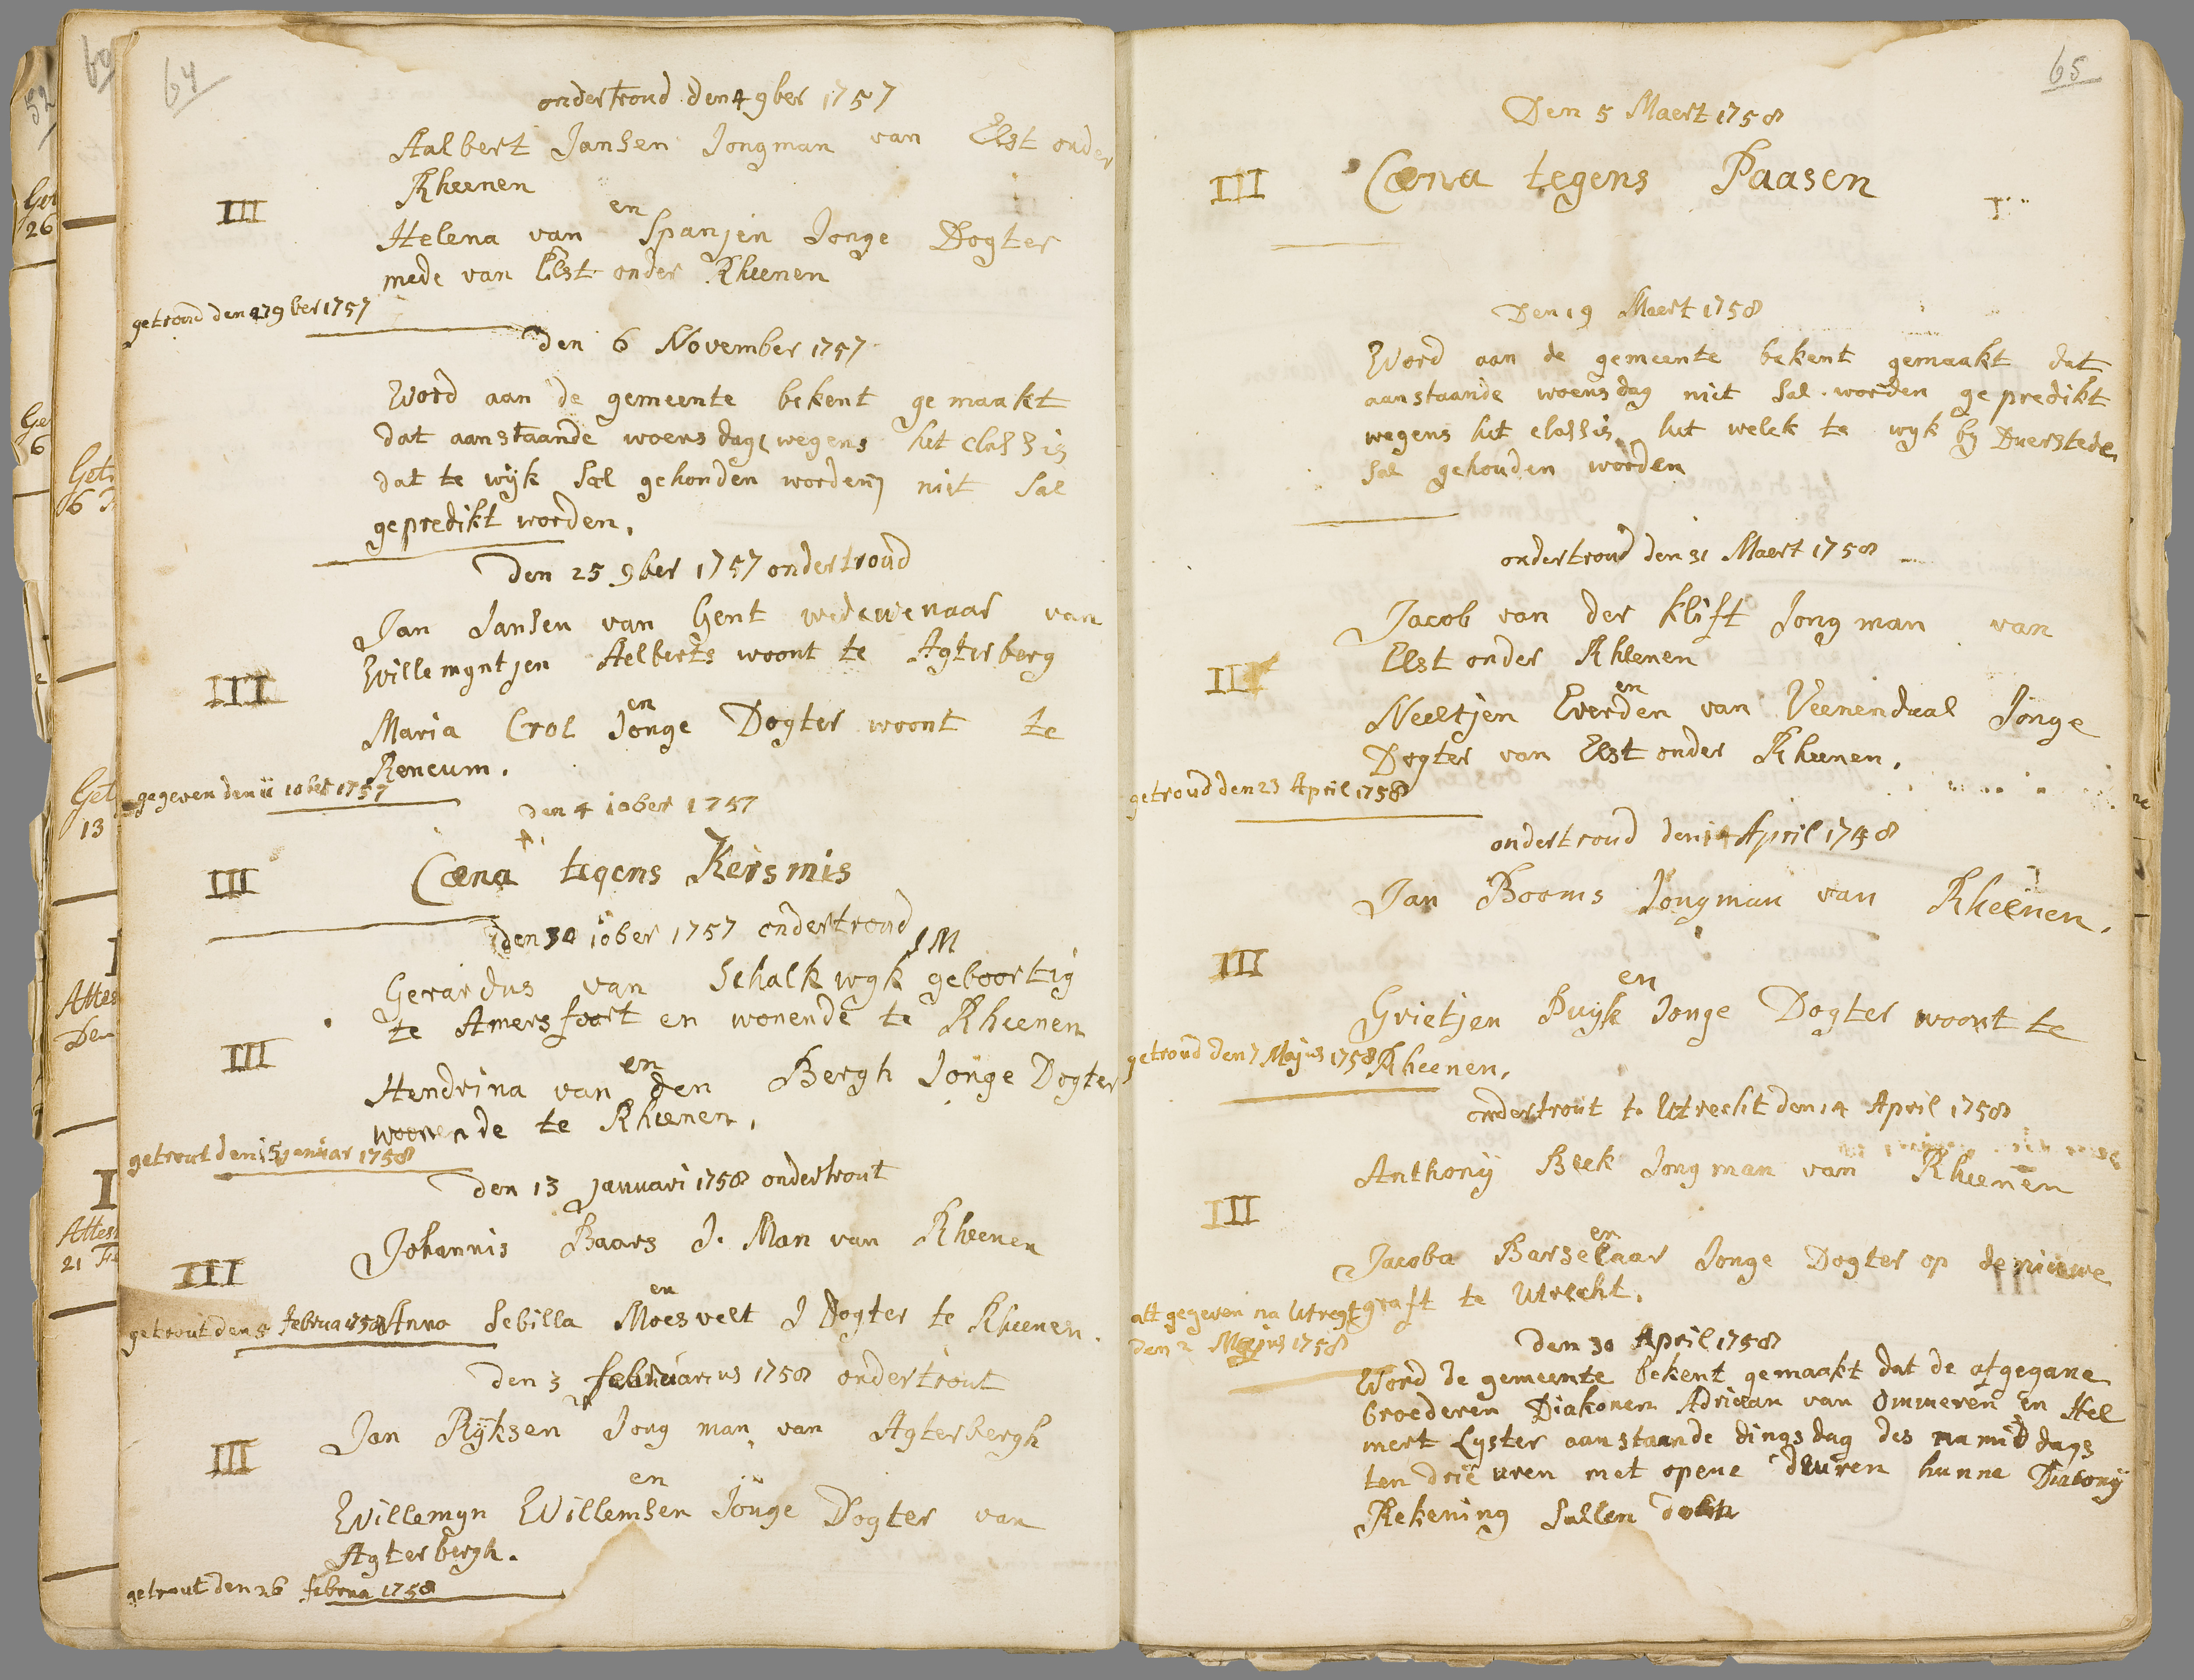 64
ondertroud den 4 9ber 1757
Aalbert Jansen Jongman van Elst onder
Rheenen
III
en
Helena van Spanjen Jonge Dogter
mede van Elst onder Rheenen
getroud den 27 9ber 1757
den 6 November 1757
Word aan de gemeente bekent gemaakt
dat aanstaande woensdag, wegens het classis
dat te wijk sal gehouden worden, niet sal
gepredikt worden.
Den 25 9ber 1757 ondertroud
Jan Jansen van Gent wedewenaar van
Willemyntjen Aelberts woont te Agterberg
III
en
Maria Crol Jonge Dogter woont te
Reneum.
gegeven den 11 10ber 1757
Den 4 10ber 1757
III
Cœna tegens Kersmis
den 30 10ber 1757 ondertroud
J M
Gerardus van Schalkwyk geboortig
te Amersfoort en wonende te Rheenen
III
en
Hendrina van den Bergh Jonge Dogter
woonende te Rheenen.
getrout den 15 januar 1758
den 13 januari 1758 ondertrout
Johannis Baars J. Man van Rheenen
III
en
getrout den 5 februa 1758 Anna Sebilla Moesvelt J Dogter te Rheenen.
den 3 februarius 1758 ondertrout
Jan Ryksen Jong man van Agterbergh
III
en
Willemyn Willemsen Jonge Dogter van
Agterbergh.
getrout den 26 februa 1758
65
Den 5 Maert 1758
III
Cœna tegens Paasen
Den 19 Maert 1758
Word aan de gemeente bekent gemaakt dat
aanstaande woensdag niet sal worden gepredikt
wegens het classis, het welck te wyk by Duerstede
sal gehouden worden
ondertroud den 31 Maert 1758
Jacob van der klift Jong man van
Elst onder Rheenen
III
en
Neeltjen Everden van Veenendaal Jonge
Dogter van Elst onder Rheenen.
getroud den 23 April 1758
ondertroud den 14 April 1758
Jan Booms Jongman van Rheenen.
III
en
Grietjen Puyk Jonge Dogter woont te
getroud den 7 Majus 1758 Rheenen.
ondertrout te Utrecht den 14 April 1758
Anthony Beek Jong man van Rheenen
III
en
Jacoba Barselaar Jonge Dogter op de nieuwe
graft te Utrecht.
att gegeven na Utregt
den 2 Majus 1758
den 30 April 1758
Word de gemeente bekent gemaakt dat de afgegane
broederen Diakonen Adriaan van Ommeren en Hel
mert Lyster aanstaande dingsdag des namiddags
ten drie uren met opene deuren hunne Diacony
Rekening sullen doen